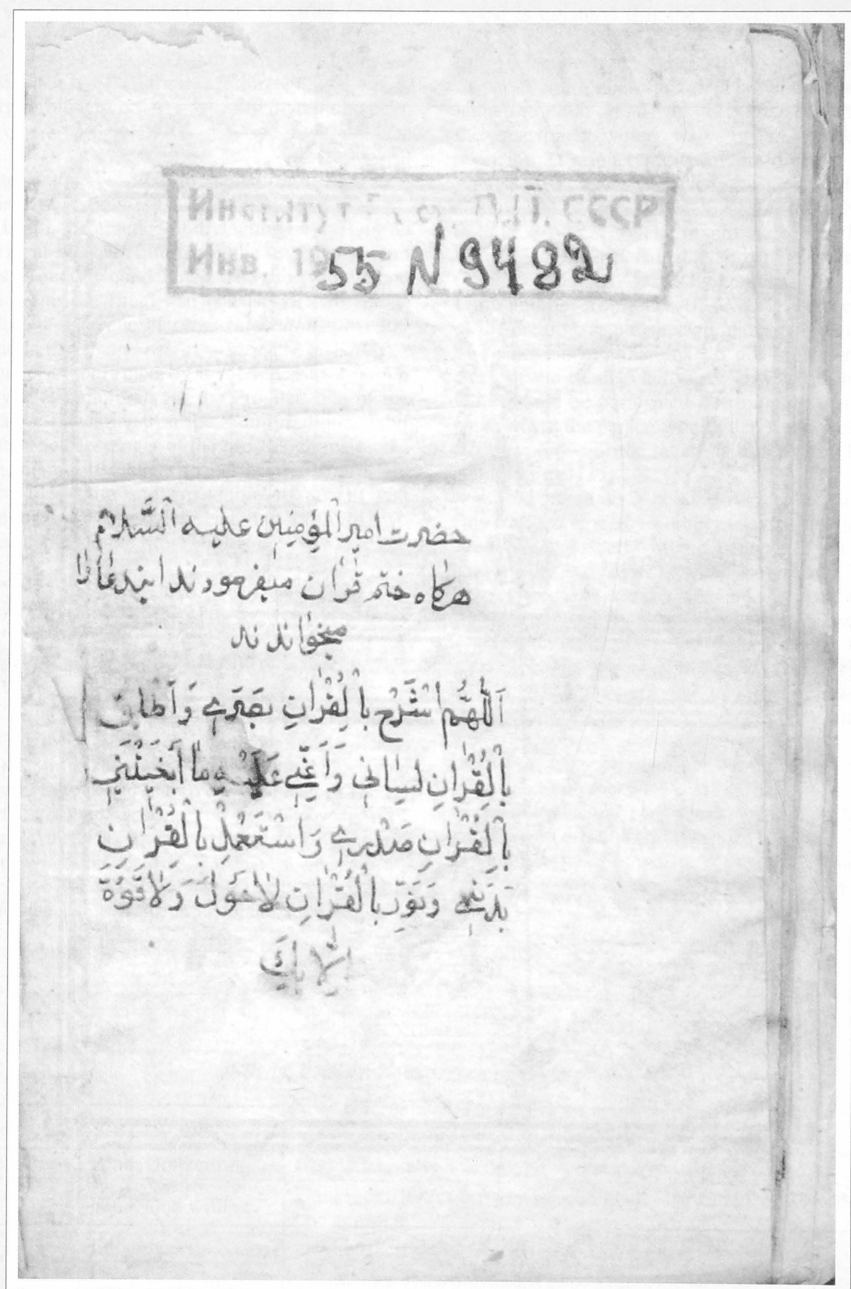 Институт СССР
Инв. 1955 N 9482
حضرت امیر الْمؤمِنین علیه السَّلام
هرکاه ختم قران میفرمودند ایندعا را
میخواندند
اَللّٰهُمَّ اشْرَحْ بِالْقُرْانِ بَصَرے وَاَطلِق
بِالْقُرْانِ لِسٰانی وَاَعِنّے عَلَیْهِ مٰا اَبْقَیْتَنی
بِالْقُرْانِ صَدْرے وَاسْتَعْمِلْ بِالْقُرْانِ
بَدَنے وَنَوِّر بِالْقُرْانِ لاٰحَوْلَ وَلاٰ قُوَّةَ
اِلّا بِكَ